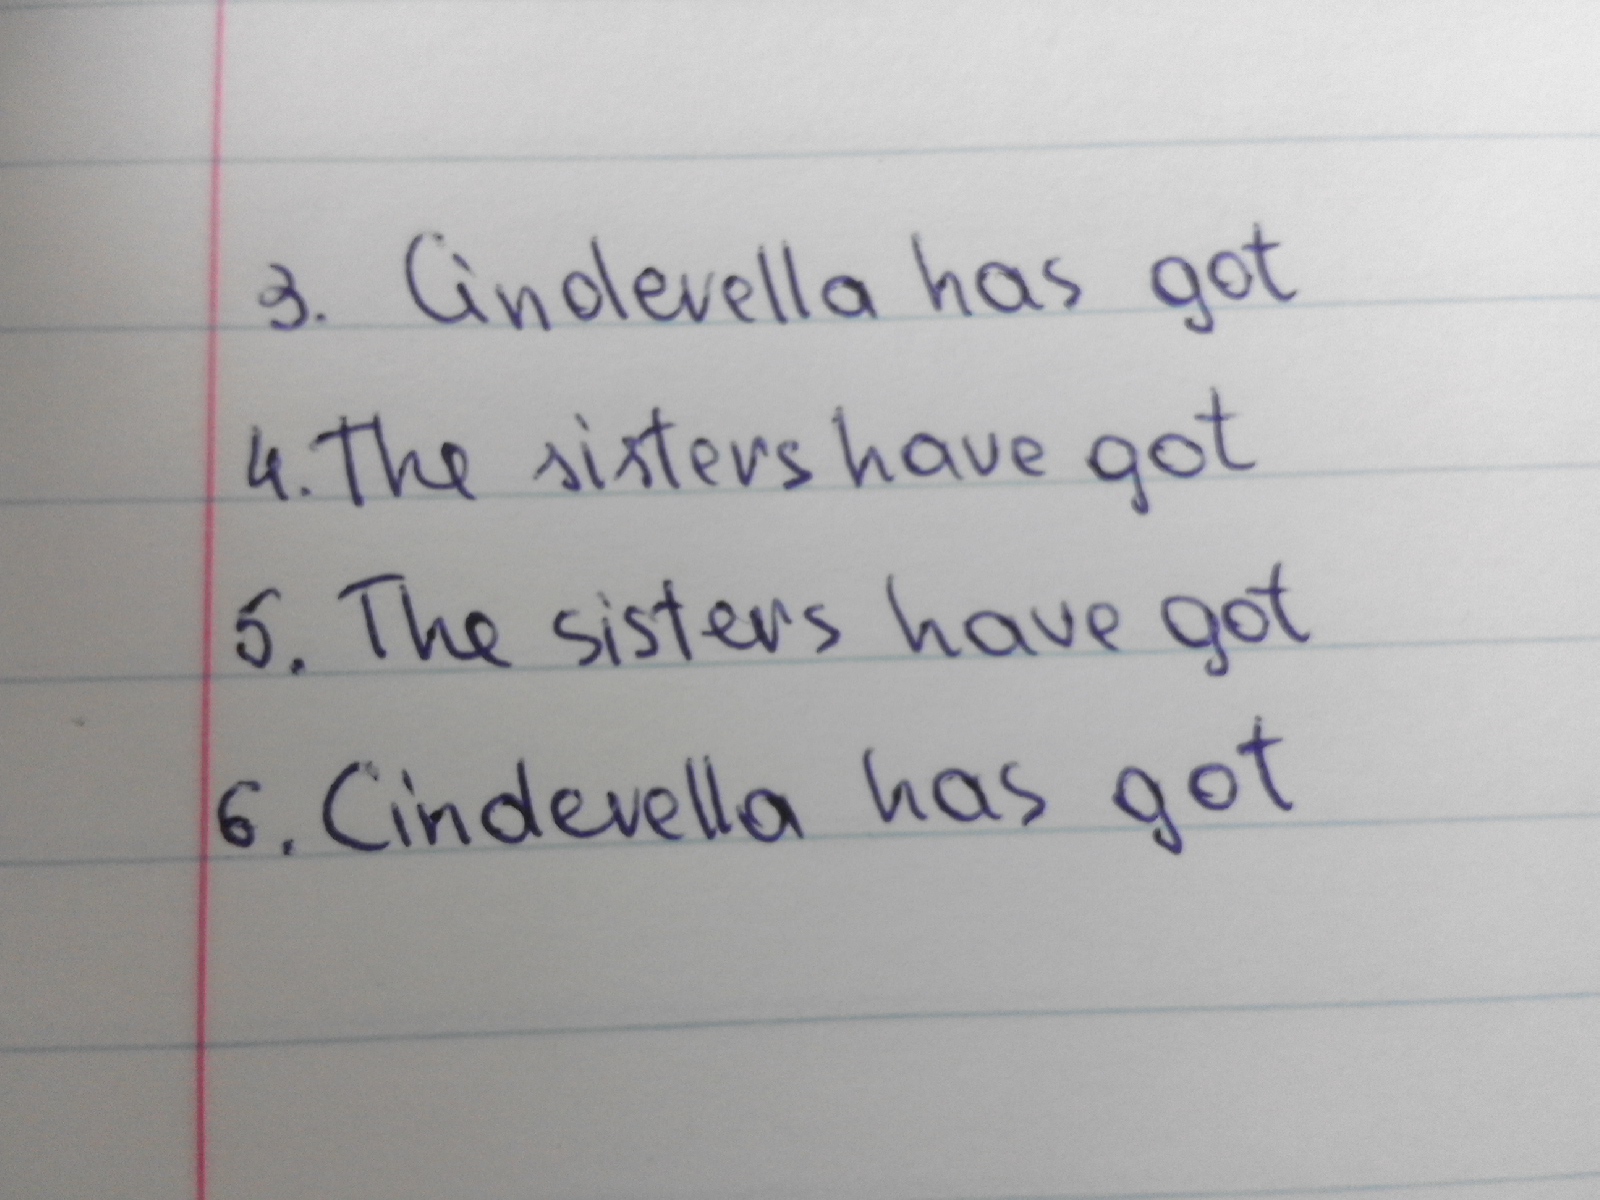 3. Cinderella has got
4. The sisters have got
5. The sisters have got
6. Cinderella has got